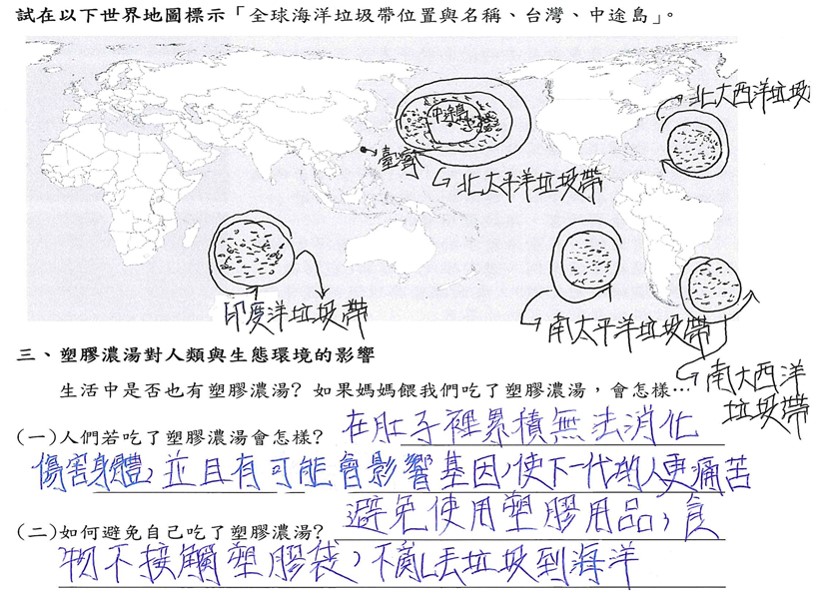 試在以下世界地圖標示「全球海洋垃圾帶位置與名稱、台灣、中途島」。
北大西洋垃圾
中途島
臺灣
北太平洋垃圾帶
印度洋垃圾帶
南太平洋垃圾帶
南大西洋
垃圾帶
三、塑膠濃湯對人類與生態環境的影響
生活中是否也有塑膠濃湯?如果媽媽餵我們吃了塑膠濃湯,會怎樣…
(一)人們若吃了塑膠濃湯會怎樣? 在肚子裡累積無法消化
傷害身體,並且有可能會影響基因,使下一代的人更痛苦
(二)如何避免自己吃了塑膠濃湯? 避免使用塑膠用品,食
物不接觸塑膠袋,不亂丟垃圾到海洋